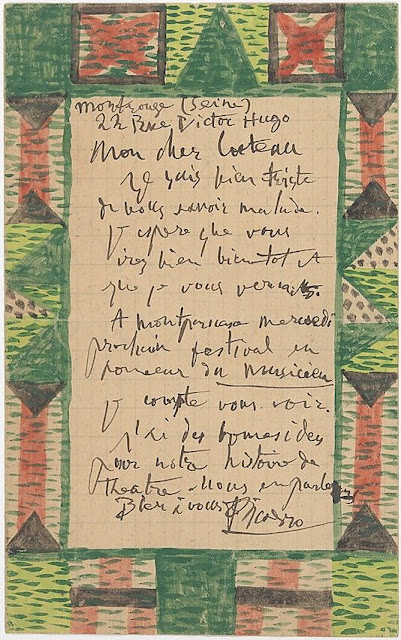 Montrouge (Seine)
22 Rue Victor Hugo
Mon cher Cocteau
Je suis bien triste
de vous savoir malade.
J'espere que vous
irez bien bientot et
que je vous verrai.
A Montparnasse mercredi
prochain festival en
honneur du musicien
je compte vous voir.
J'ai des bonnes idees
pour notre histoire de
theatre. Nous en parlerons
Bien à vous Picasso